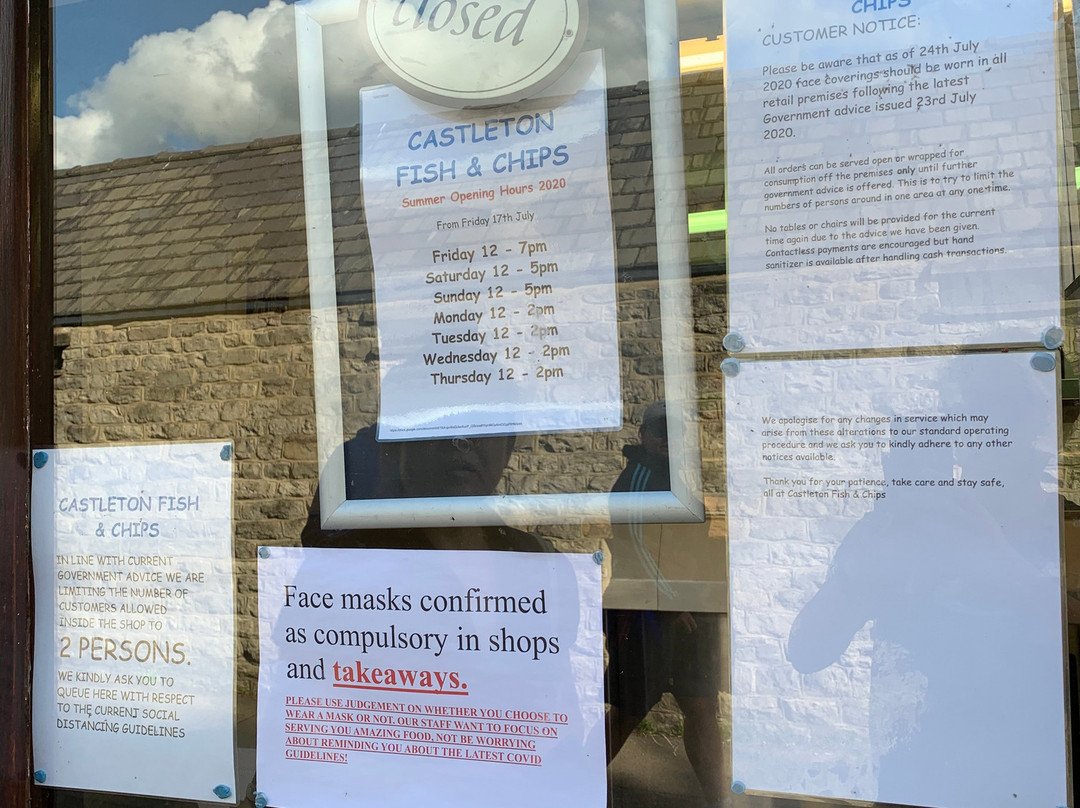 closed
CASTLETON
FISH & CHIPS
Summer Opening Hours 2020
From Friday 17th July
Friday 12 - 7pm
Saturday 12 - 5pm
Sunday 12 - 5pm
Monday 12 - 2pm
Tuesday 12 - 2pm
Wednesday 12 - 2pm
Thursday 12 - 2pm
CHIPS
CUSTOMER NOTICE:
Please be aware that as of 24th July
2020 face coverings should be worn in all
retail premises following the latest
Government advice issued 23rd July
2020.
All orders can be served open or wrapped for
consumption off the premises only until further
government advice is offered. This is to try to limit the
numbers of persons around in one area at any one time.
No tables or chairs will be provided for the current
time again due to the advice we have been given.
Contactless payments are encouraged but hand
sanitizer is available after handling cash transactions.
We apologise for any changes in service which may
arise from these alterations to our standard operating
procedure and we ask you to kindly adhere to any other
notices available.
Thank you for your patience, take care and stay safe,
all at Castleton Fish & Chips
CASTLETON FISH
& CHIPS
IN LINE WITH CURRENT
GOVERNMENT ADVICE WE ARE
LIMITING THE NUMBER OF
CUSTOMERS ALLOWED
INSIDE THE SHOP TO
2 PERSONS.
WE KINDLY ASK YOU TO
QUEUE HERE WITH RESPECT
TO THE CURRENT SOCIAL
DISTANCING GUIDELINES
Face masks confirmed
as compulsory in shops
and takeaways.
PLEASE USE JUDGEMENT ON WHETHER YOU CHOOSE TO
WEAR A MASK OR NOT. OUR STAFF WANT TO FOCUS ON
SERVING YOU AMAZING FOOD, NOT BE WORRYING
ABOUT REMINDING YOU ABOUT THE LATEST COVID
GUIDELINES!